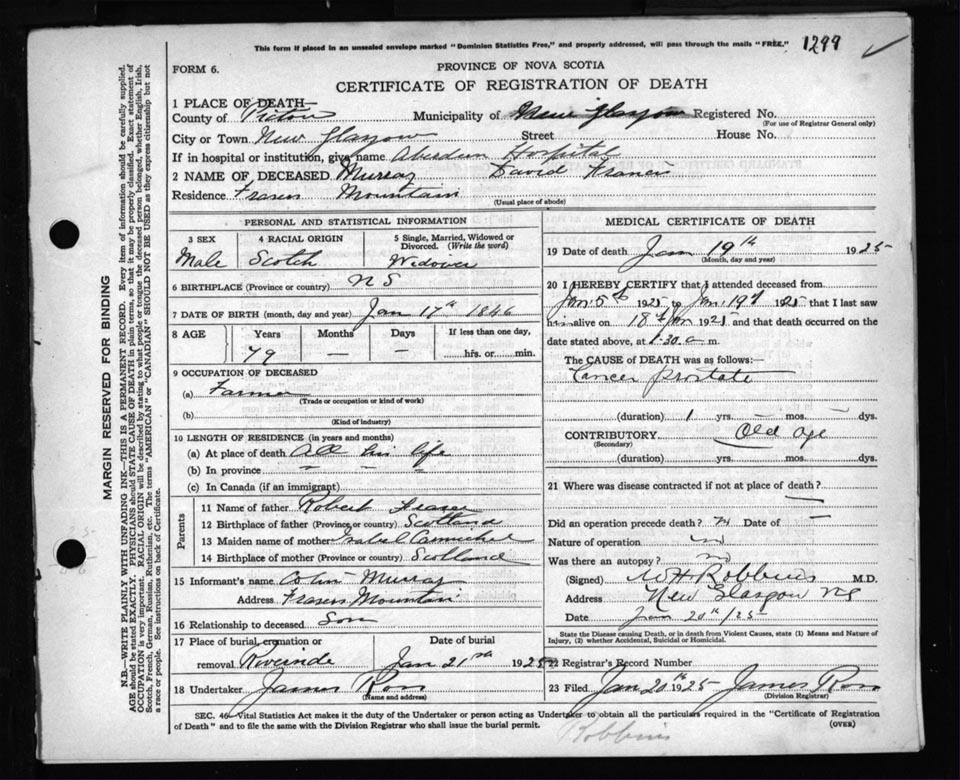 This form if placed in an unsealed envelope marked "Dominion Statistics Free," and properly addressed, will pass through the mails "FREE." 1299
PROVINCE OF NOVA SCOTIA
FORM 6.
CERTIFICATE OF REGISTRATION OF DEATH
1 PLACE OF DEATH—
County of Pictou Municipality of New Glasgow Registered No.
(For use of Registrar General only)
City or Town New Glasgow Street House No.
If in hospital or institution, give name Aberdeen Hospital
2 NAME OF DECEASED Murray David Francis
Residence Frasers Mountain
(Usual place of abode)
PERSONAL AND STATISTICAL INFORMATION
3 SEX 4 RACIAL ORIGIN 5 Single, Married, Widowed or Divorced. (Write the word)
Male Scotch Widower
6 BIRTHPLACE (Province or country) N S
7 DATE OF BIRTH (month, day and year) Jan 17th 1846
8 AGE Years Months Days If less than one day,
79 — — hrs. or min.
9 OCCUPATION OF DECEASED
(a) Farmer
(Trade or occupation or kind of work)
(b)
(Kind of industry)
10 LENGTH OF RESIDENCE (in years and months)
(a) At place of death All his life
(b) In province " " "
(c) In Canada (if an immigrant)
Parents
11 Name of father Robert Fraser
12 Birthplace of father (Province or country) Scotland
13 Maiden name of mother Isabel Carmichel
14 Birthplace of mother (Province or country) Scotland
15 Informant's name Colin Murray
Address Frasers Mountain
16 Relationship to deceased Son
17 Place of burial, cremation or removal Riverside Date of burial Jan 21st 1925
18 Undertaker James Ross
(Name and address)
MEDICAL CERTIFICATE OF DEATH
19 Date of death Jan 19th 1925
(Month, day and year)
20 I HEREBY CERTIFY that I attended deceased from
Jan. 5th 1925 to Jan. 19th 1925 that I last saw
him alive on 18th Jan 1925 and that death occurred on the
date stated above, at 1.30 a m.
The CAUSE OF DEATH was as follows:—
Cancer prostate
(duration) 1 yrs. — mos. — dys.
CONTRIBUTORY Old age
(Secondary)
(duration) yrs. mos. dys.
21 Where was disease contracted if not at place of death?
—
Did an operation precede death? no Date of —
Nature of operation
Was there an autopsy? no
(Signed) W H Robbins M.D.
Address New Glasgow NS
Date Jan 20th/25
State the Disease causing Death, or in death from Violent Causes, state (1) Means and Nature of Injury, (2) whether Accidental, Suicidal or Homicidal.
22 Registrar's Record Number
23 Filed Jan 20th 1925 James Ross
(Division Registrar)
SEC. 46—Vital Statistics Act makes it the duty of the Undertaker or person acting as Undertaker to obtain all the particulars required in the "Certificate of Registration
of Death" and to file the same with the Division Registrar who shall issue the burial permit. (OVER)
Robbins
MARGIN RESERVED FOR BINDING
N.B.—WRITE PLAINLY WITH UNFADING INK—THIS IS A PERMANENT RECORD. Every item of information should be carefully supplied.
AGE should be stated EXACTLY. PHYSICIANS should STATE CAUSE OF DEATH in plain terms, so that it may be properly classified. Exact statement of
OCCUPATION is very important. RACIAL ORIGIN will be described by stating to what people or tongue the deceased person belonged, whether English, Irish,
Scotch, French, German, Russian, Ruthenian, etc. The terms "AMERICAN" or "CANADIAN" SHOULD NOT BE USED as they express citizenship but not
a race or people. See instructions on back of Certificate.